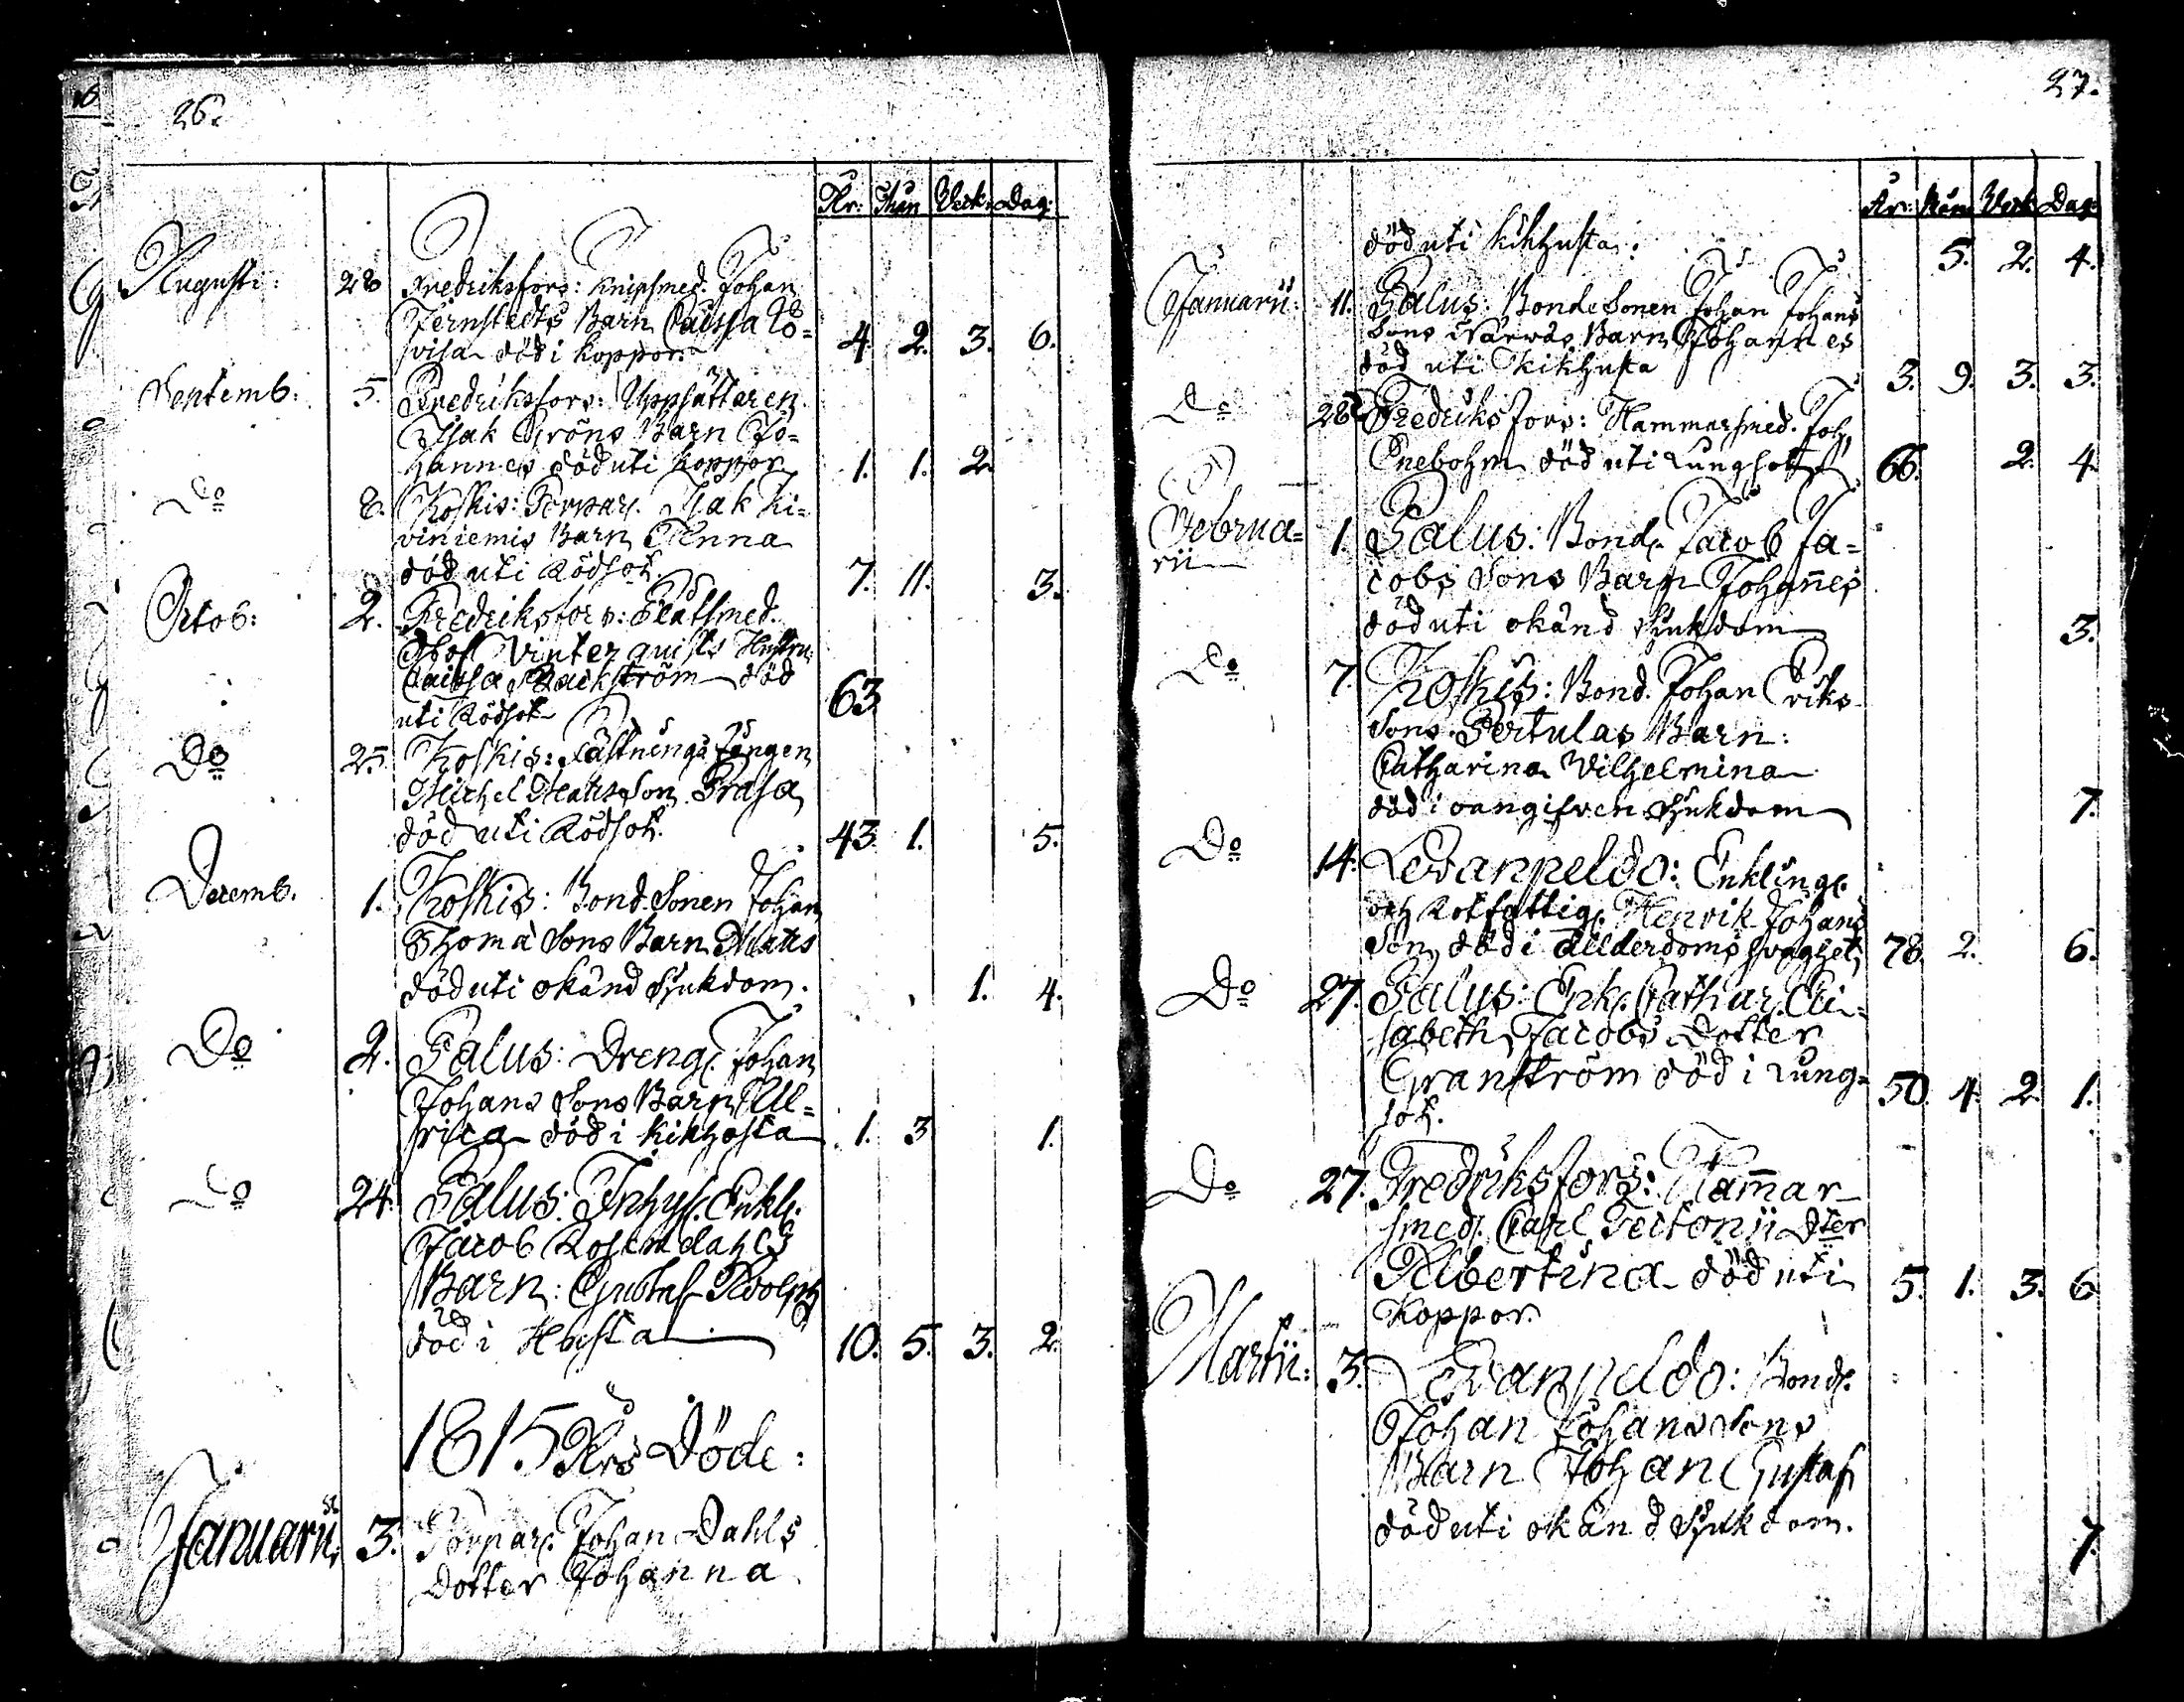 26.
År: Mån Veck: Dag:
Augusti: 28 Fredriksfors: Knipsmed. Johan
Jernstedts Barn Caissa Lo-
visa död i koppor. 4. 2. 3. 6.
Septemb: 5. Fredriksfors: Uppsättaren
Isak Gröns Barn Jo-
hannes död uti koppor 1. 1. 2.
Do 8. Koskis: Torpar. Isak Ki-
viniemis Barn Anna
död uti Rödsot. 7. 11. 3.
Octob: 2. Fredriksfors: Plåtsmed.
Olof Vinterquists Hustru
Caissa Backström död
uti Rödsot 63.
Do 25. Koskis: Fästnings fången
Michel Matsson Prasa
död uti Rödsot. 43. 1. 5.
Decemb. 1. Koskis: Bond. Sonen Johan
Thoma Sons Barn Mats
död uti okänd Sjukdom. 1. 4.
Do 2. Salus: Dreng. Johan
Johans Sons Barn Ul-
rica död i kikhosta 1. 3 1.
Do 24. Salus: Inhys. Enkl.
Jacob Rosendahls
Barn: Gustaf Adolph
död i Hosta 10. 5. 3. 2.
1815 Års Döde:
Januarii 3. Torpar. Johan Dahls
Dotter Johanna
27.
År: Mån Veck Dag:
död uti kikhusta: 5. 2. 4.
Januarii: 11. Salus: Bonde Sonen Johan Johans
Sons Närväs Barn Johannes
död uti kikhusta 3. 9. 3. 3.
Do 28 Fredriksfors: Hammarsmed. Joh.
Enebohm död uti Lungsot 66. 2. 4.
Februa= 1. Salus: Bond. Jacob Ja=
rii cobs Sons Barn Johañes
död uti okänd Sjukdom 3.
Do 7. Koskis: Bond. Johan Eriks
Sons Pertulas Barn:
Catharina Vilhelmina
död i oangifven Sjukdom 7.
Do 14. Levanpeldo: Enkling.
och Rotfattig. Henrik Johans
Son, död i ålderdoms svaghet 78. 2. 6.
Do 27. Salus: Enk. Cathar. Eli-
sabeth Jacobs Dotter
Granström död i Lung= 50. 4. 2. 1.
sot.
Do 27. Fredriksfors: Ham̃ar
smed. Carl Tectonii Dter
Albertina död uti 5. 1. 3. 6
koppor.
Martii: 3. Levanpeldo: Bond.
Johan Johans Sons
Barn Johan Gustaf
död uti okänd Sjukdom. 7.